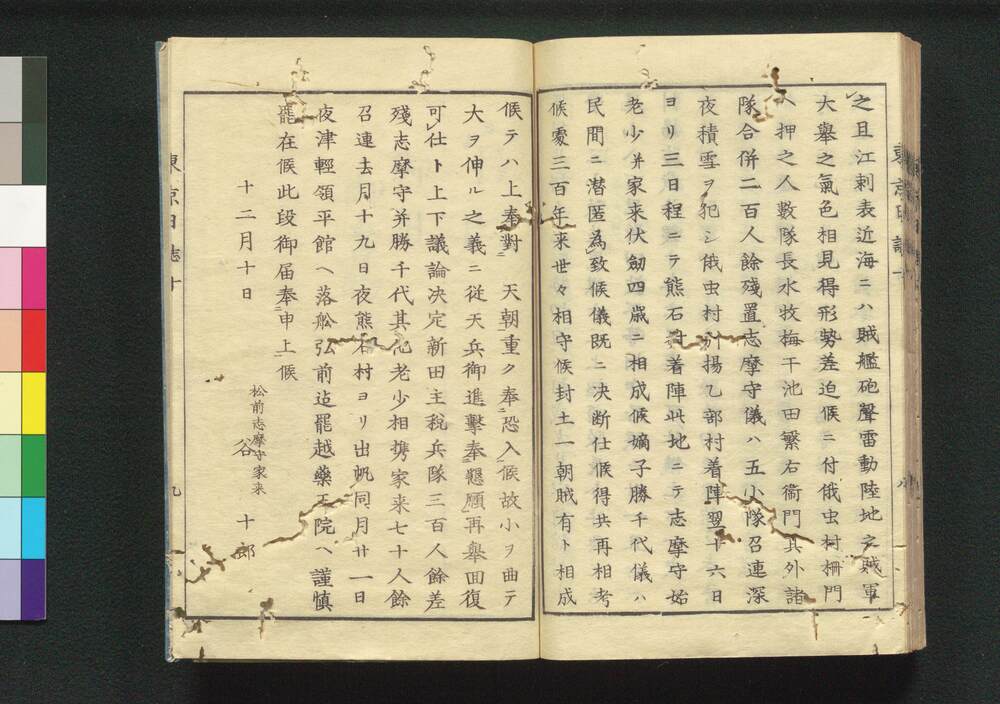 之且江刺表近海ニハ賊艦砲聲雷動陸地之賊軍
大擧之氣色相見得形勢差迫候ニ付俄虫村柵門
へ押之人數隊長水牧梅干池田繁右衞門其外諸
隊合併二百人餘殘置志摩守儀ハ五小隊召連深
夜積雪ヲ犯シ俄虫村引揚乙部村着陣翌十六日
ヨリ三日程ニテ熊石村着陣此地ニテ志摩守始
老少并家来伏劔四歳ニ相成候嫡子勝千代儀ハ
民間ニ潜匿為致候儀既ニ决断仕候得共再相考
候處三百年来世々相守候封土一朝賊有ト相成
候テハ上奉對 天朝重ク奉恐入候故小ヲ曲テ
大ヲ伸ル之義ニ従天兵御進擊奉懇願再擧回復
可仕ト上下議論决定新田主税兵隊三百人餘差
殘志摩守并勝千代其他老少相携家来七十人餘
召連去月十九日夜熊石村ヨリ出帆同月廿一日
夜津輕領平館へ落舩弘前迠罷越藥王院へ謹慎
罷在候此段御届奉申上候
十二月十日
松前志摩守家来
谷 十郎
東京日誌十
九